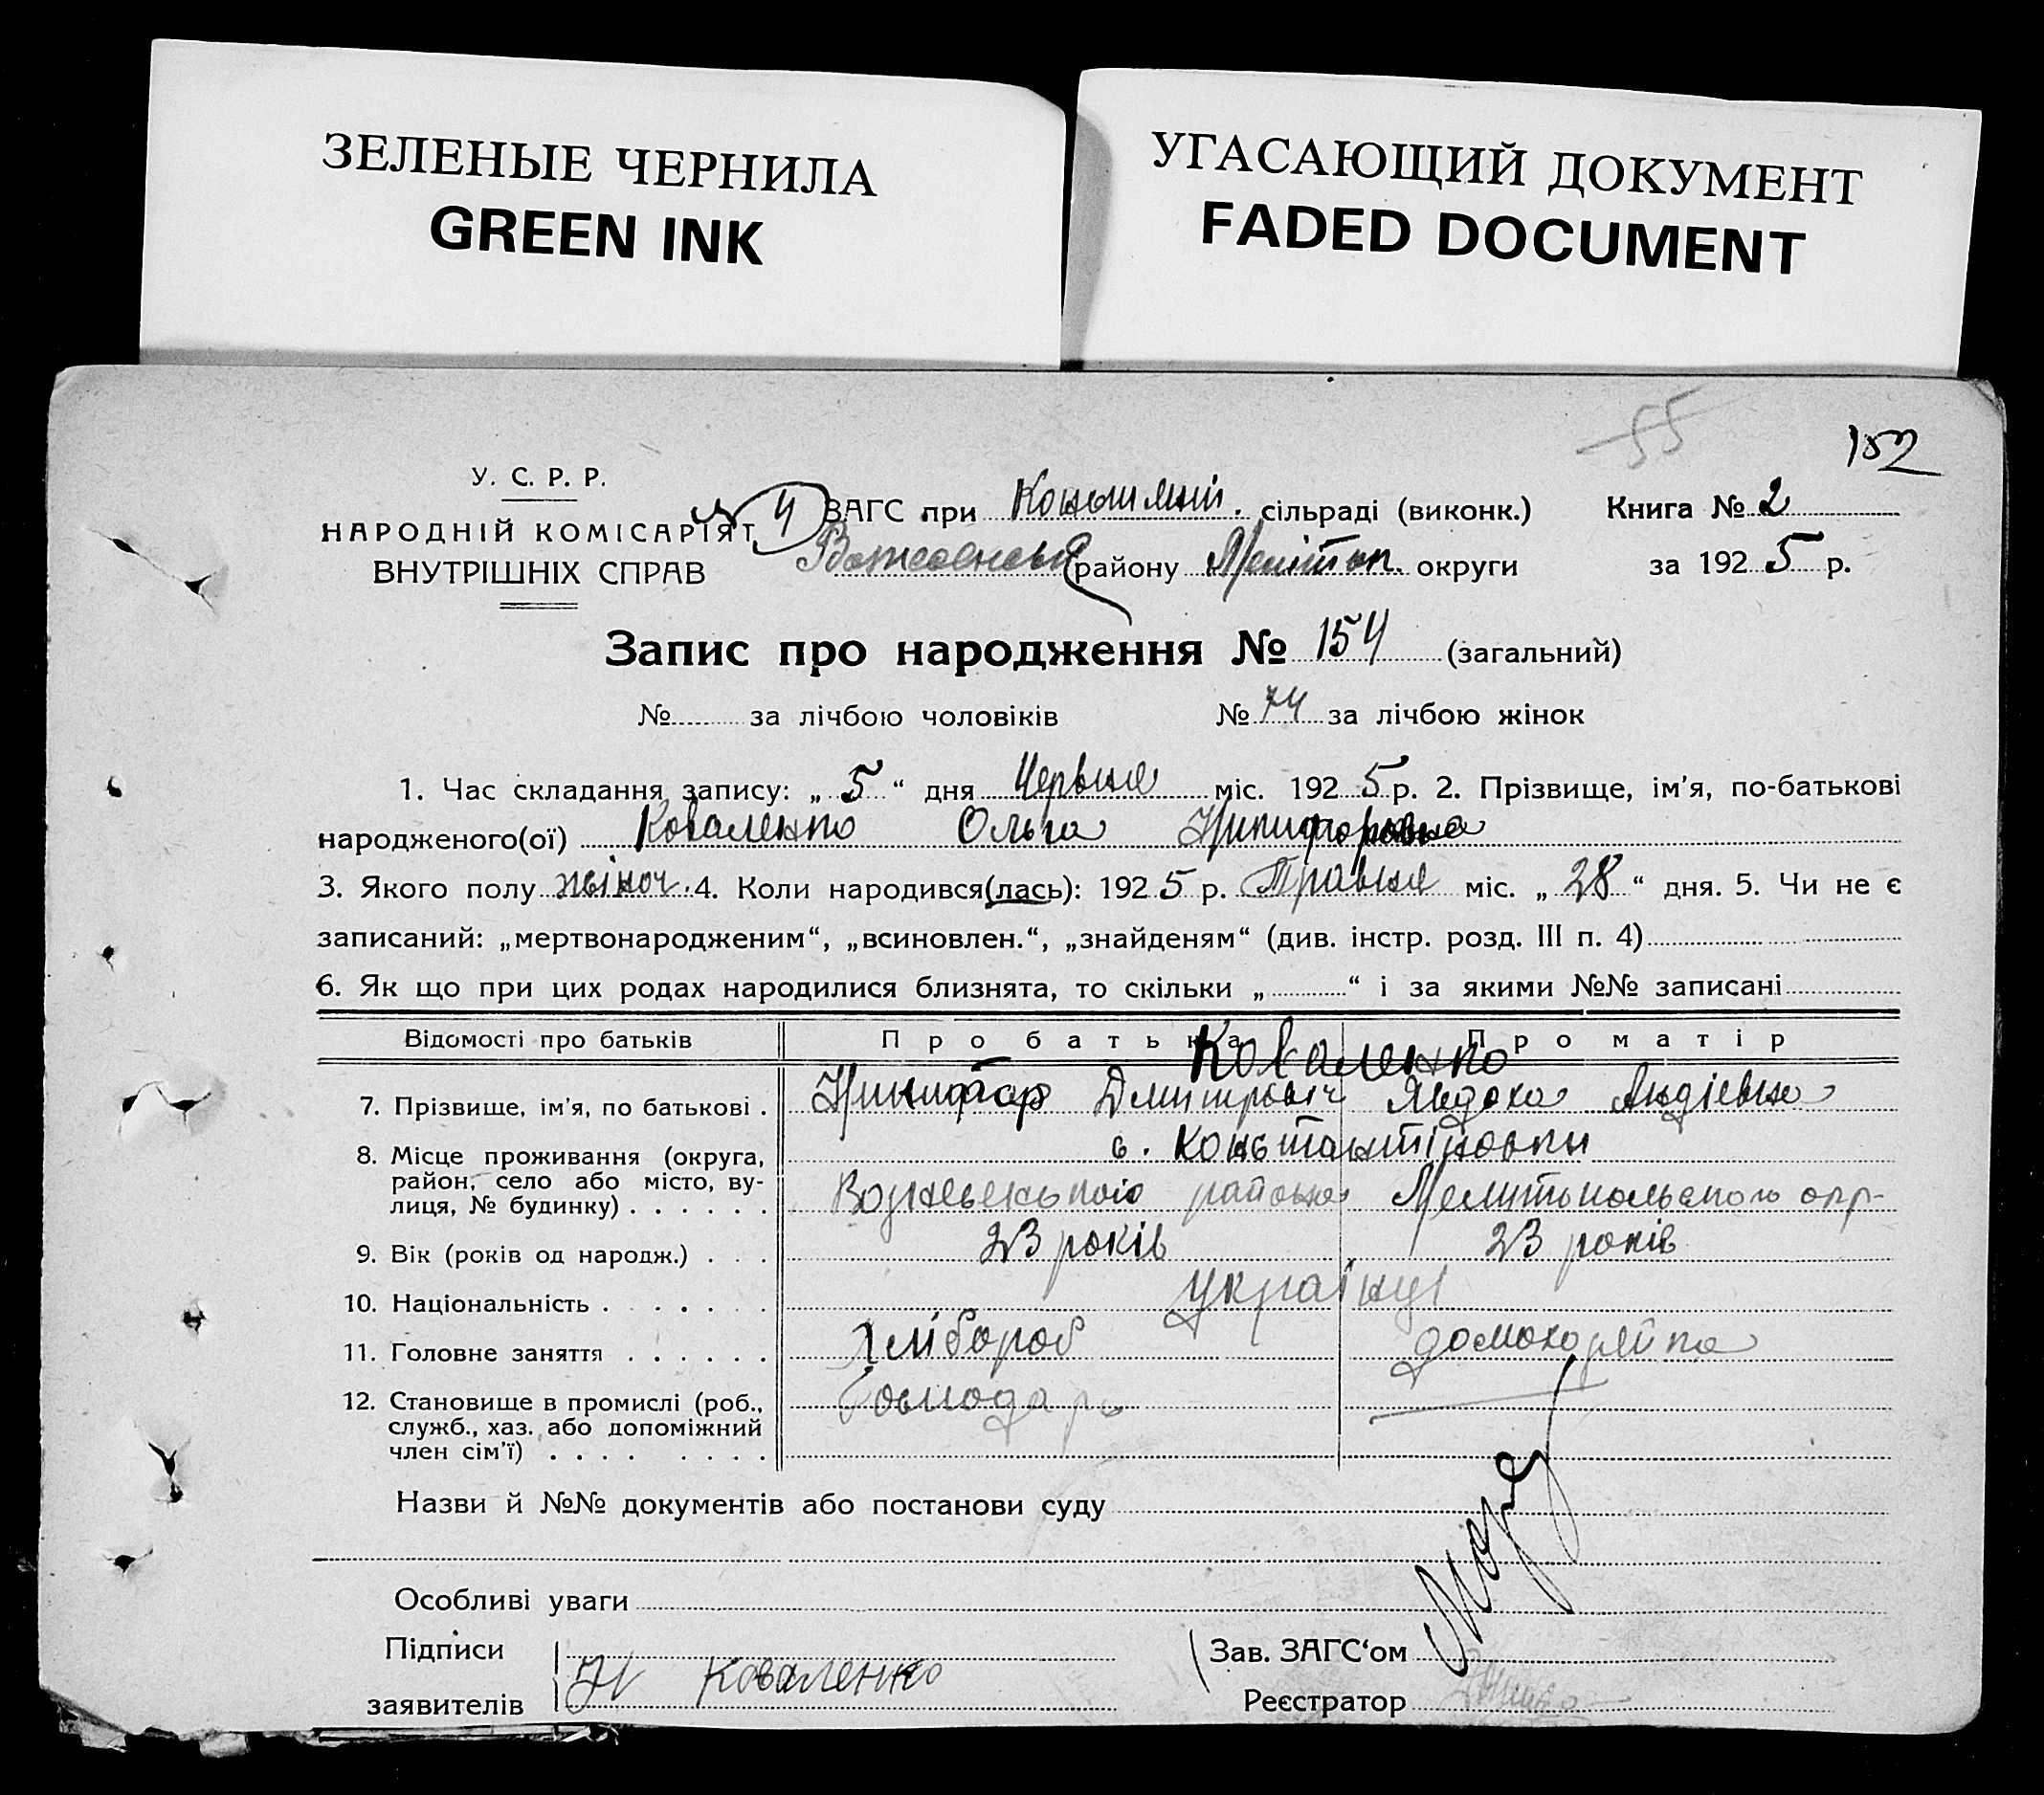 ЗЕЛЕНЫЕ ЧЕРНИЛА
GREEN INK
УГАСАЮЩИЙ ДОКУМЕНТ
FADED DOCUMENT
55
152
У. С. Р. Р.
НАРОДНІЙ КОМІСАРІЯТ
ВНУТРІШНІХ СПРАВ
4 ЗАГС при сільраді (виконк.) Книга № 2
району Мелітоп. округи за 1925 р.
Запис про народження № 154 (загальний)
№ за лічбою чоловіків № 74 за лічбою жінок
1. Час складання запису: „ 5 “ дня Червня міс. 1925 р. 2. Прізвище, ім'я, по-батькові
народженого(ої) Коваленко Ольга Никифоровна
3. Якого полу жіноч. 4. Коли народився(лась): 1925 р. Травня міс. „ 28 “ дня. 5. Чи не є
записаний: „мертвонародженим“, „всиновлен.“, „знайденям“ (див. інстр. розд. III п. 4)
6. Як що при цих родах народилися близнята, то скільки „ “ і за якими №№ записані
Відомості про батьків Про батька Про матір
Коваленко
7. Прізвище, ім'я, по батькові . Никифор Дмитровіч Явдоха Андіевна
8. Місце проживання (округа, с. Константіновки
район, село або місто, ву-
лиця, № будинку) . . . . . . района Мелитопольського окр-
9. Вік (років од народж.) . . . 23 років 23 років
10. Національність . . . . . . українці
11. Головне заняття . . . . . . Хлібороб домохоряйка
12. Становище в промислі (роб., Господарь —
служб., хаз. або допоміжний
член сім'ї) . . . . . . . .
Назви й №№ документів або постанови суду
Особливі уваги
Підписи Зав. ЗАГС‘ом
заявителів Н Коваленко Реєстратор